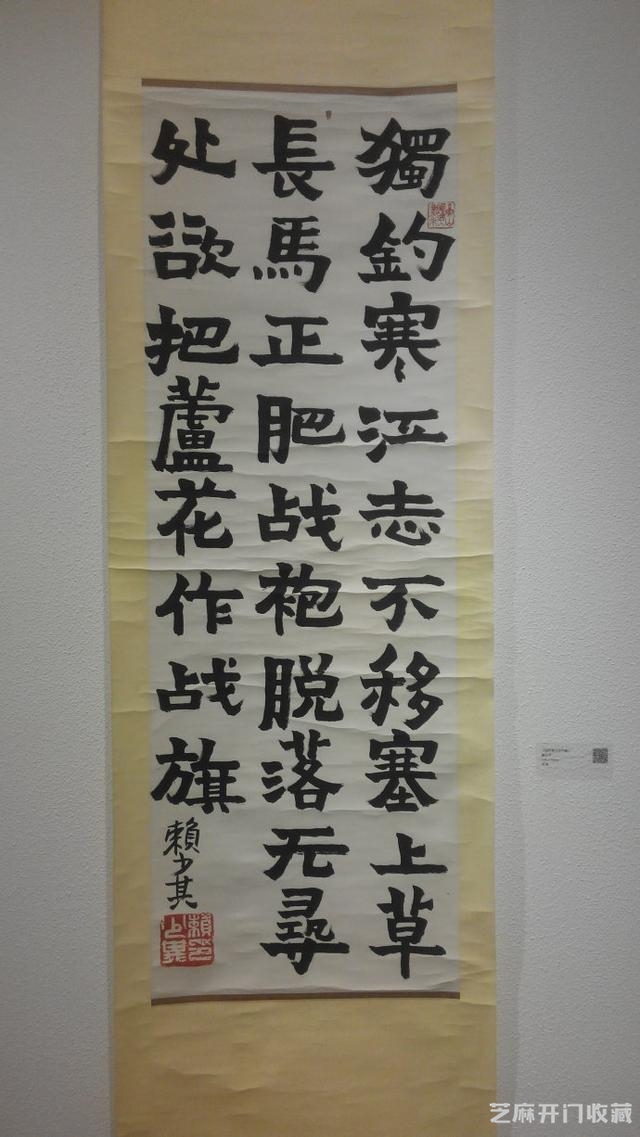 獨釣寒江志不移塞上草
長馬正肥战袍脱落无尋
处欲把蘆花作战旗
賴少其
芝麻开门收藏